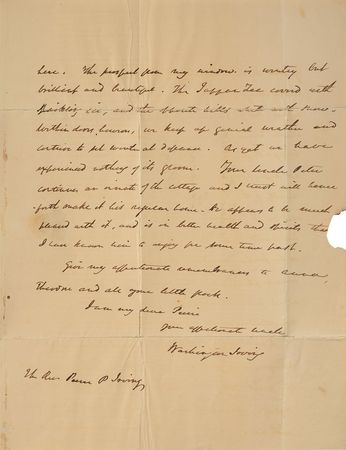 here. The prospect from my window is wintry but
brilliant and beautiful. The Tappan Zee covered with
sparkling ice, and the opposite hills white with snow.
Within doors, however, we keep up genial weather and
contrive to set winter at defiance. As yet we have
experienced nothing of its gloom. Your Uncle Peter
continues an inmate of the cottage and I trust will hence
forth make it his regular home. He appears to be much
pleased with it, and is in better health and spirits than
I have known him to enjoy for some time past.
Give my affectionate remembrances to
Theodore and all your little flock.
I am my dear Pierre
your affectionate uncle
Washington Irving
The Rev. Pierre P Irving